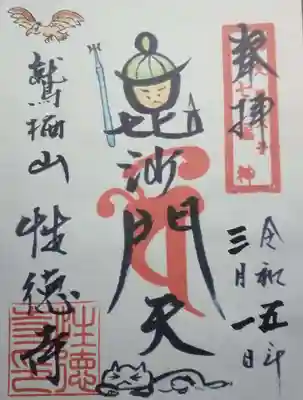 奉拝
七
神
令和五年
三月一日
毘沙門天
鷲栖山
性徳寺
性徳
寺